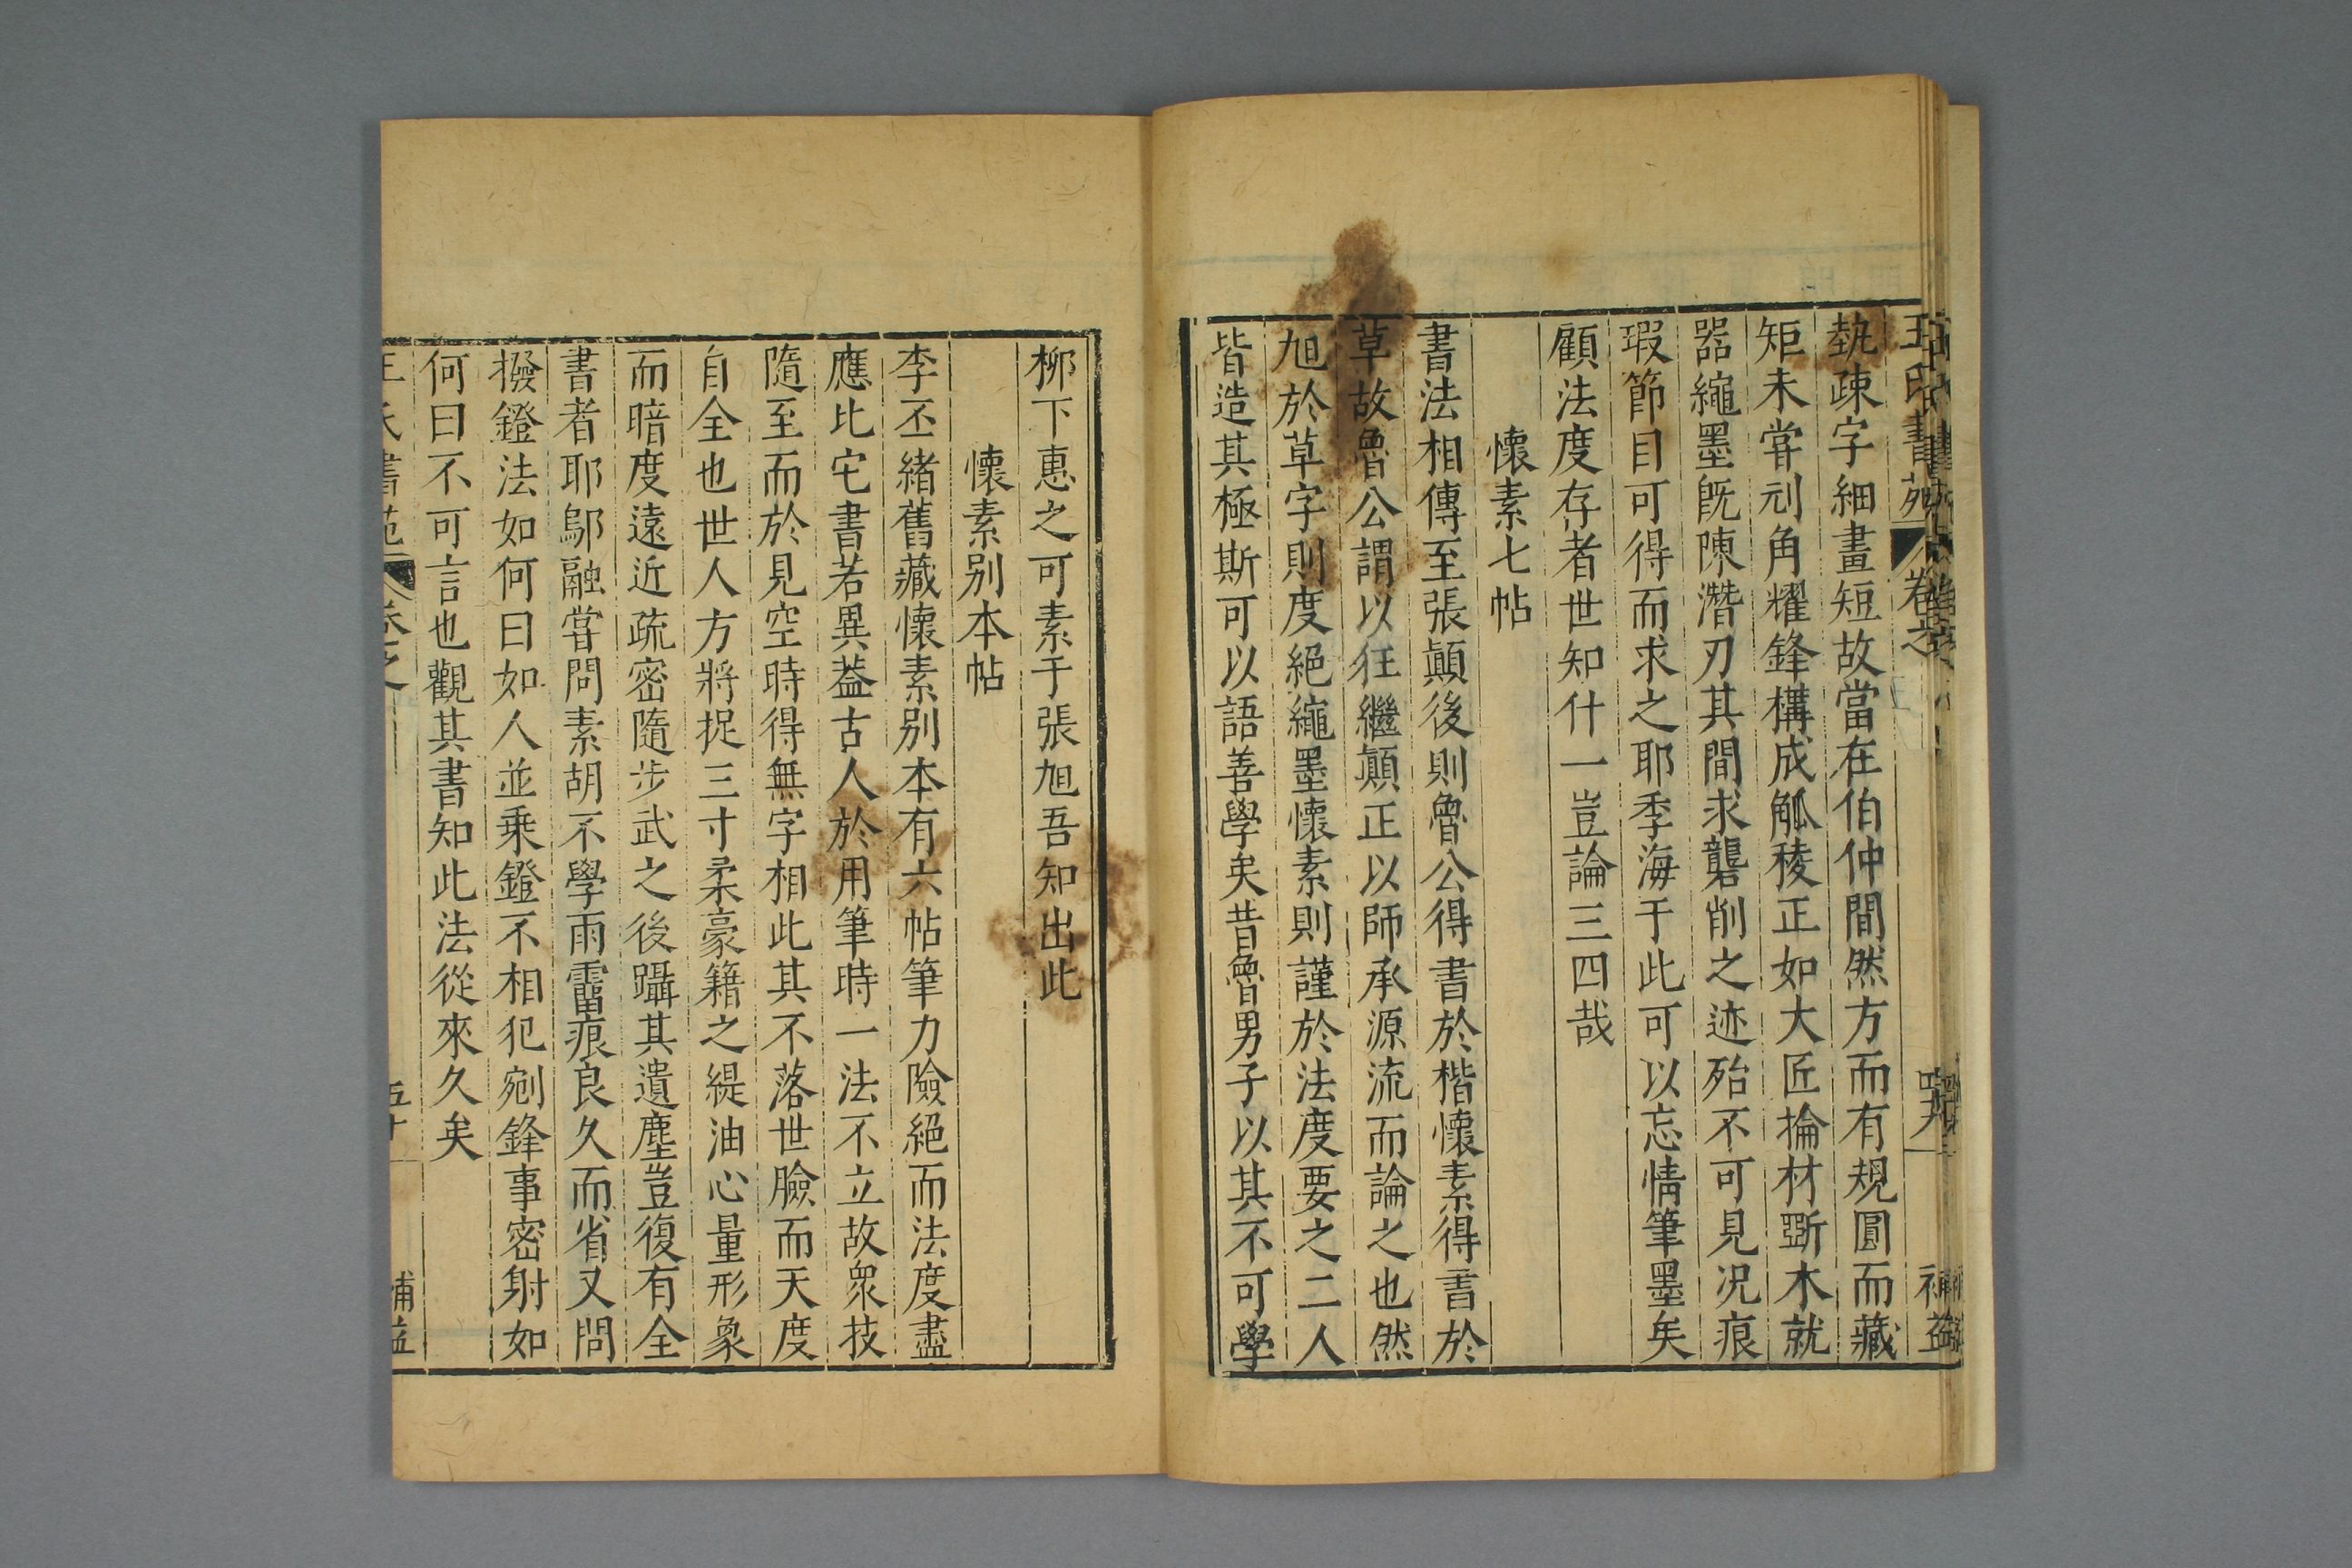 王氏書苑 卷之 補益
埶疎字細畫短故當在伯仲間然方而有規圓而藏
矩未甞刓角耀鋒構成觚稜正如大匠掄材斵木就
器繩墨旣陳潛刃其間求礱削之迹殆不可見况痕
瑕節目可得而求之耶季海于此可以忘情筆墨矣
顧法度存者世知什一豈論三四哉
懷素七帖
書法相傳至張顛後則魯公得書於楷懷素得書於
草故魯公謂以狂繼顛正以師承源流而論之也然
旭於草字則度絕繩墨懷素則謹於法度要之二人
皆造其極斯可以語善學矣昔魯男子以其不可學
柳下惠之可素于張旭吾知出此
懷素別本帖
李丕緒舊藏懷素別本有六帖筆力險絕而法度盡
應比宅書若異葢古人於用筆時一法不立故衆技
隨至而於見空時得無字相此其不落世臉而天度
自全也世人方將捉三寸柔豪籍之緹油心量形象
而暗度遠近疏密隨步武之後躡其遺塵豈復有全
書者耶鄔融甞問素胡不學雨霤痕良久而省又問
撥鐙法如何曰如人並乘鐙不相犯剜鋒事密射如
何曰不可言也觀其書知此法從來久矣
王氏書苑 卷之 五十 補益